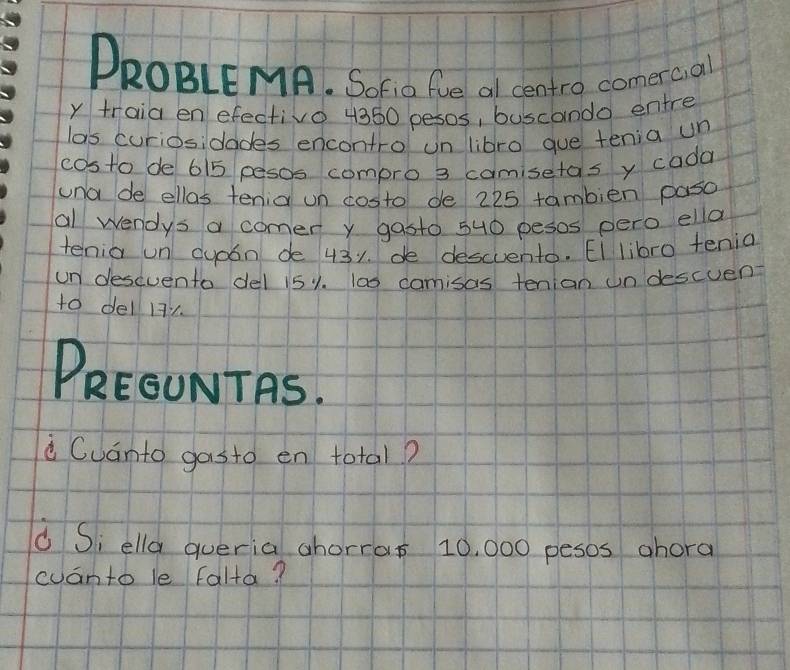 PROBLEMA. Sofia fue al centro comercial
y traia en efectivo 4350 pesos, buscando entre
las curiosidades encontro un libro que tenia un
costo de 615 pesos compro 3 camisetas y cada
una de ellas tenia un costo de 225 tambien paso
al wendys a comer y gasto 540 pesos pero ella
tenia un cupón de 43% de descuento. El libro tenia
un descuento del 15% las camisas tenian un descuen-
to del 17%
PREGUNTAS.
¿Cuánto gasto en total?
¿Si ella queria ahorrar 10.000 pesos ahora
cuánto le falta?